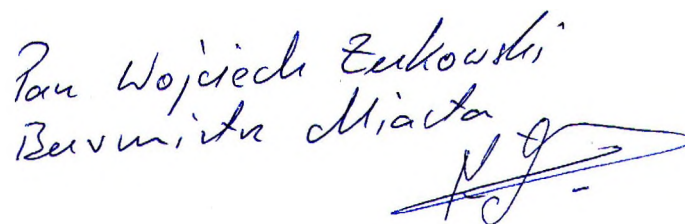 Pan Wojciech Żukowski
Burmistrz Miasta